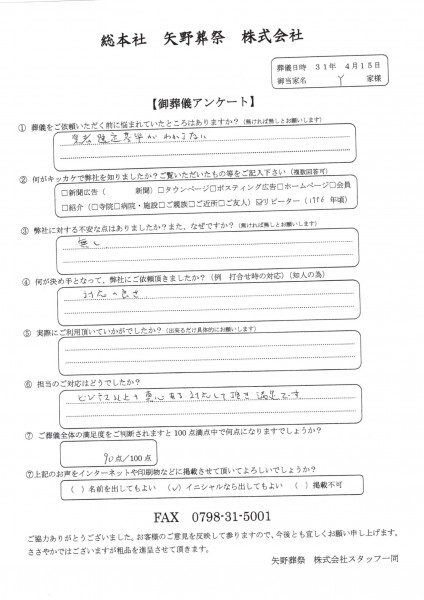 総本社 矢野葬祭 株式会社
葬儀日時 31年 4月15日
御当家名 Y 家様
【御葬儀アンケート】
① 葬儀をご依頼いただく前に悩まれていたところはありますか？（無ければ無しとお願いします）
業者選定基準がわからない
② 何がキッカケで弊社を知りましたか？ご覧いただいたもの等をご記入下さい（複数回答可）
□新聞広告（ 新聞）□タウンページ□ポスティング広告□ホームページ□会員
□紹介（□寺院□病院・施設□ご親族□ご近所□ご友人）☑リピーター（1996年頃）
③ 弊社に対する不安な点はありましたか？また、なぜですか？（無ければ無しとお願いします）
無し
④ 何が決め手となって、弊社にご依頼頂きましたか？（例 打合せ時の対応）（知人の為）
対応の良さ
⑤ 実際にご利用頂いていかがでしたか？（出来るだけ具体的にお願いします）
⑥ 担当のご対応はどうでしたか？
ビジネス以上の真心ある対応して頂き満足です
⑦ ご葬儀全体の満足度をご判断されますと100点満点中で何点になりますでしょうか？
90点/100点
⑦上記のお声をインターネットや印刷物などに掲載させて頂いてよろしいでしょうか？
（ ）名前を出してもよい （✓）イニシャルなら出してもよい （ ）掲載不可
FAX 0798-31-5001
ご協力ありがとうございました。お客様のご意見を反映して参りますので、今後とも宜しくお願い申し上げます。
ささやかではございますが粗品を進呈させて頂きます。
矢野葬祭 株式会社スタッフ一同